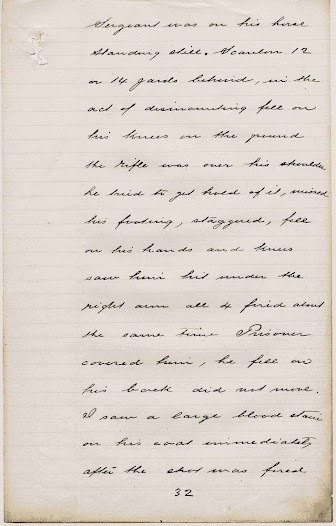 Sergeant was on his horse
standing still. Scanlon 12
or 14 yards behind, in the
act of dismounting fell on
his knees on the ground
the rifle was over his shoulder
he tried to get hold of it, missed
his footing, staggered, fell
on his hands and knees
saw him hit under the
right arm all 4 fired about
the same time Prisoner
covered him, he fell on
his back did not move.
I saw a large blood stain
on his coat immediately
after the shot was fired
32